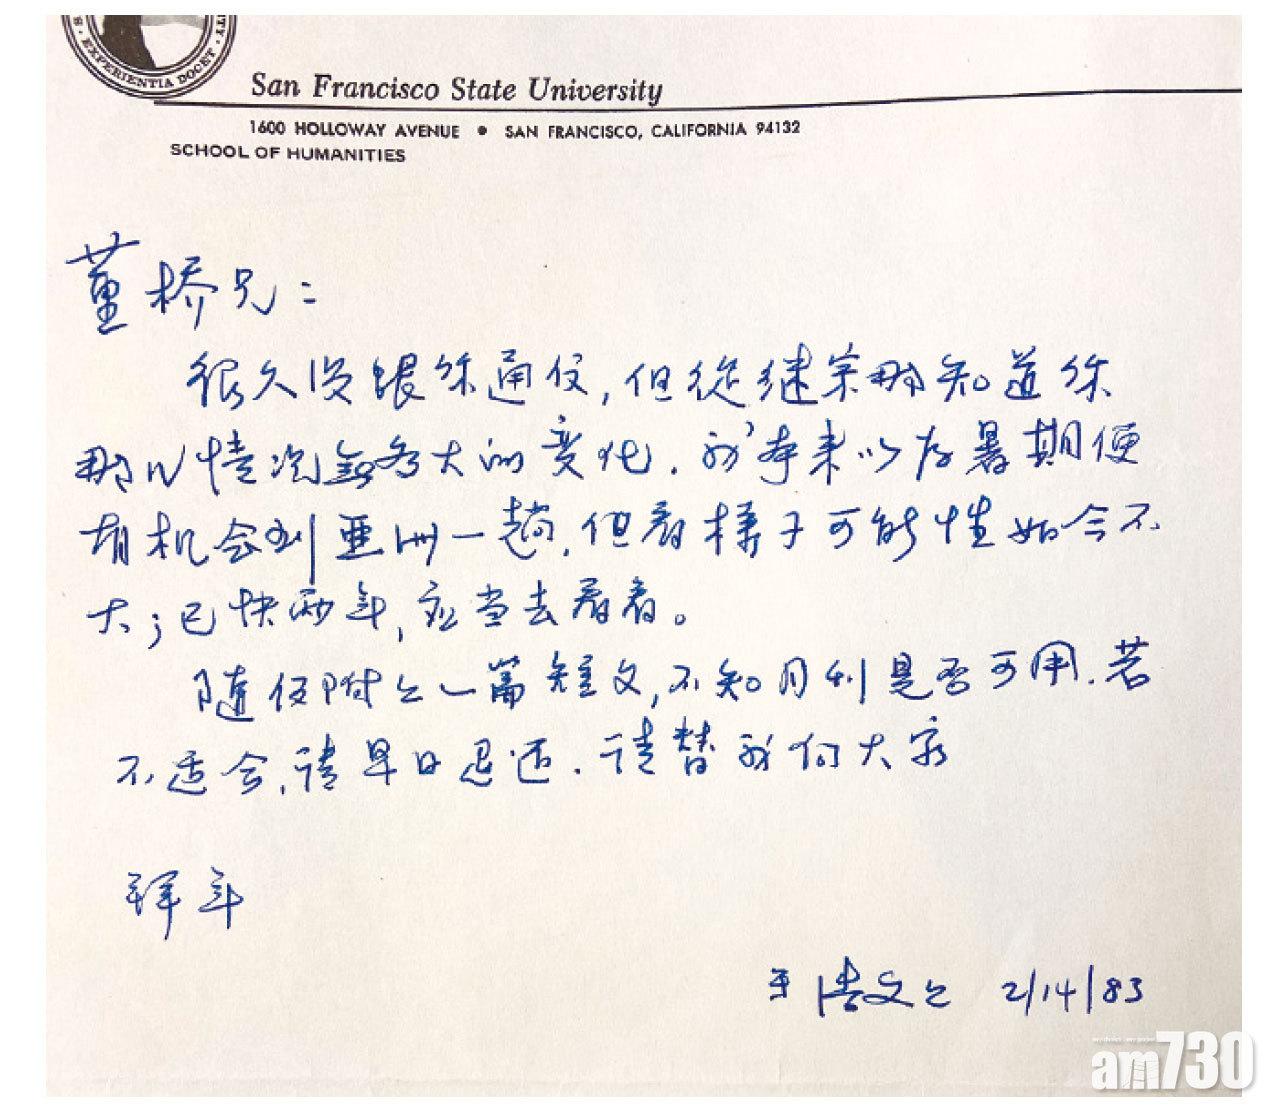 · EXPERIENTIA DOCET ·
San Francisco State University
1600 HOLLOWAY AVENUE • SAN FRANCISCO, CALIFORNIA 94132
SCHOOL OF HUMANITIES
董桥兄：
很久没跟你通信，但从继宗那知道你
那儿情况无多大的变化．我本来以为暑期便
有机会到亚洲一趟，但看样子可能性如今不
大；已快两年，应当去看看。
随信附上一篇短文，不知月刊是否可用．若
不适合，请早日退还．请替我向大家
拜年
弟 浩文上 2/14/83
am730